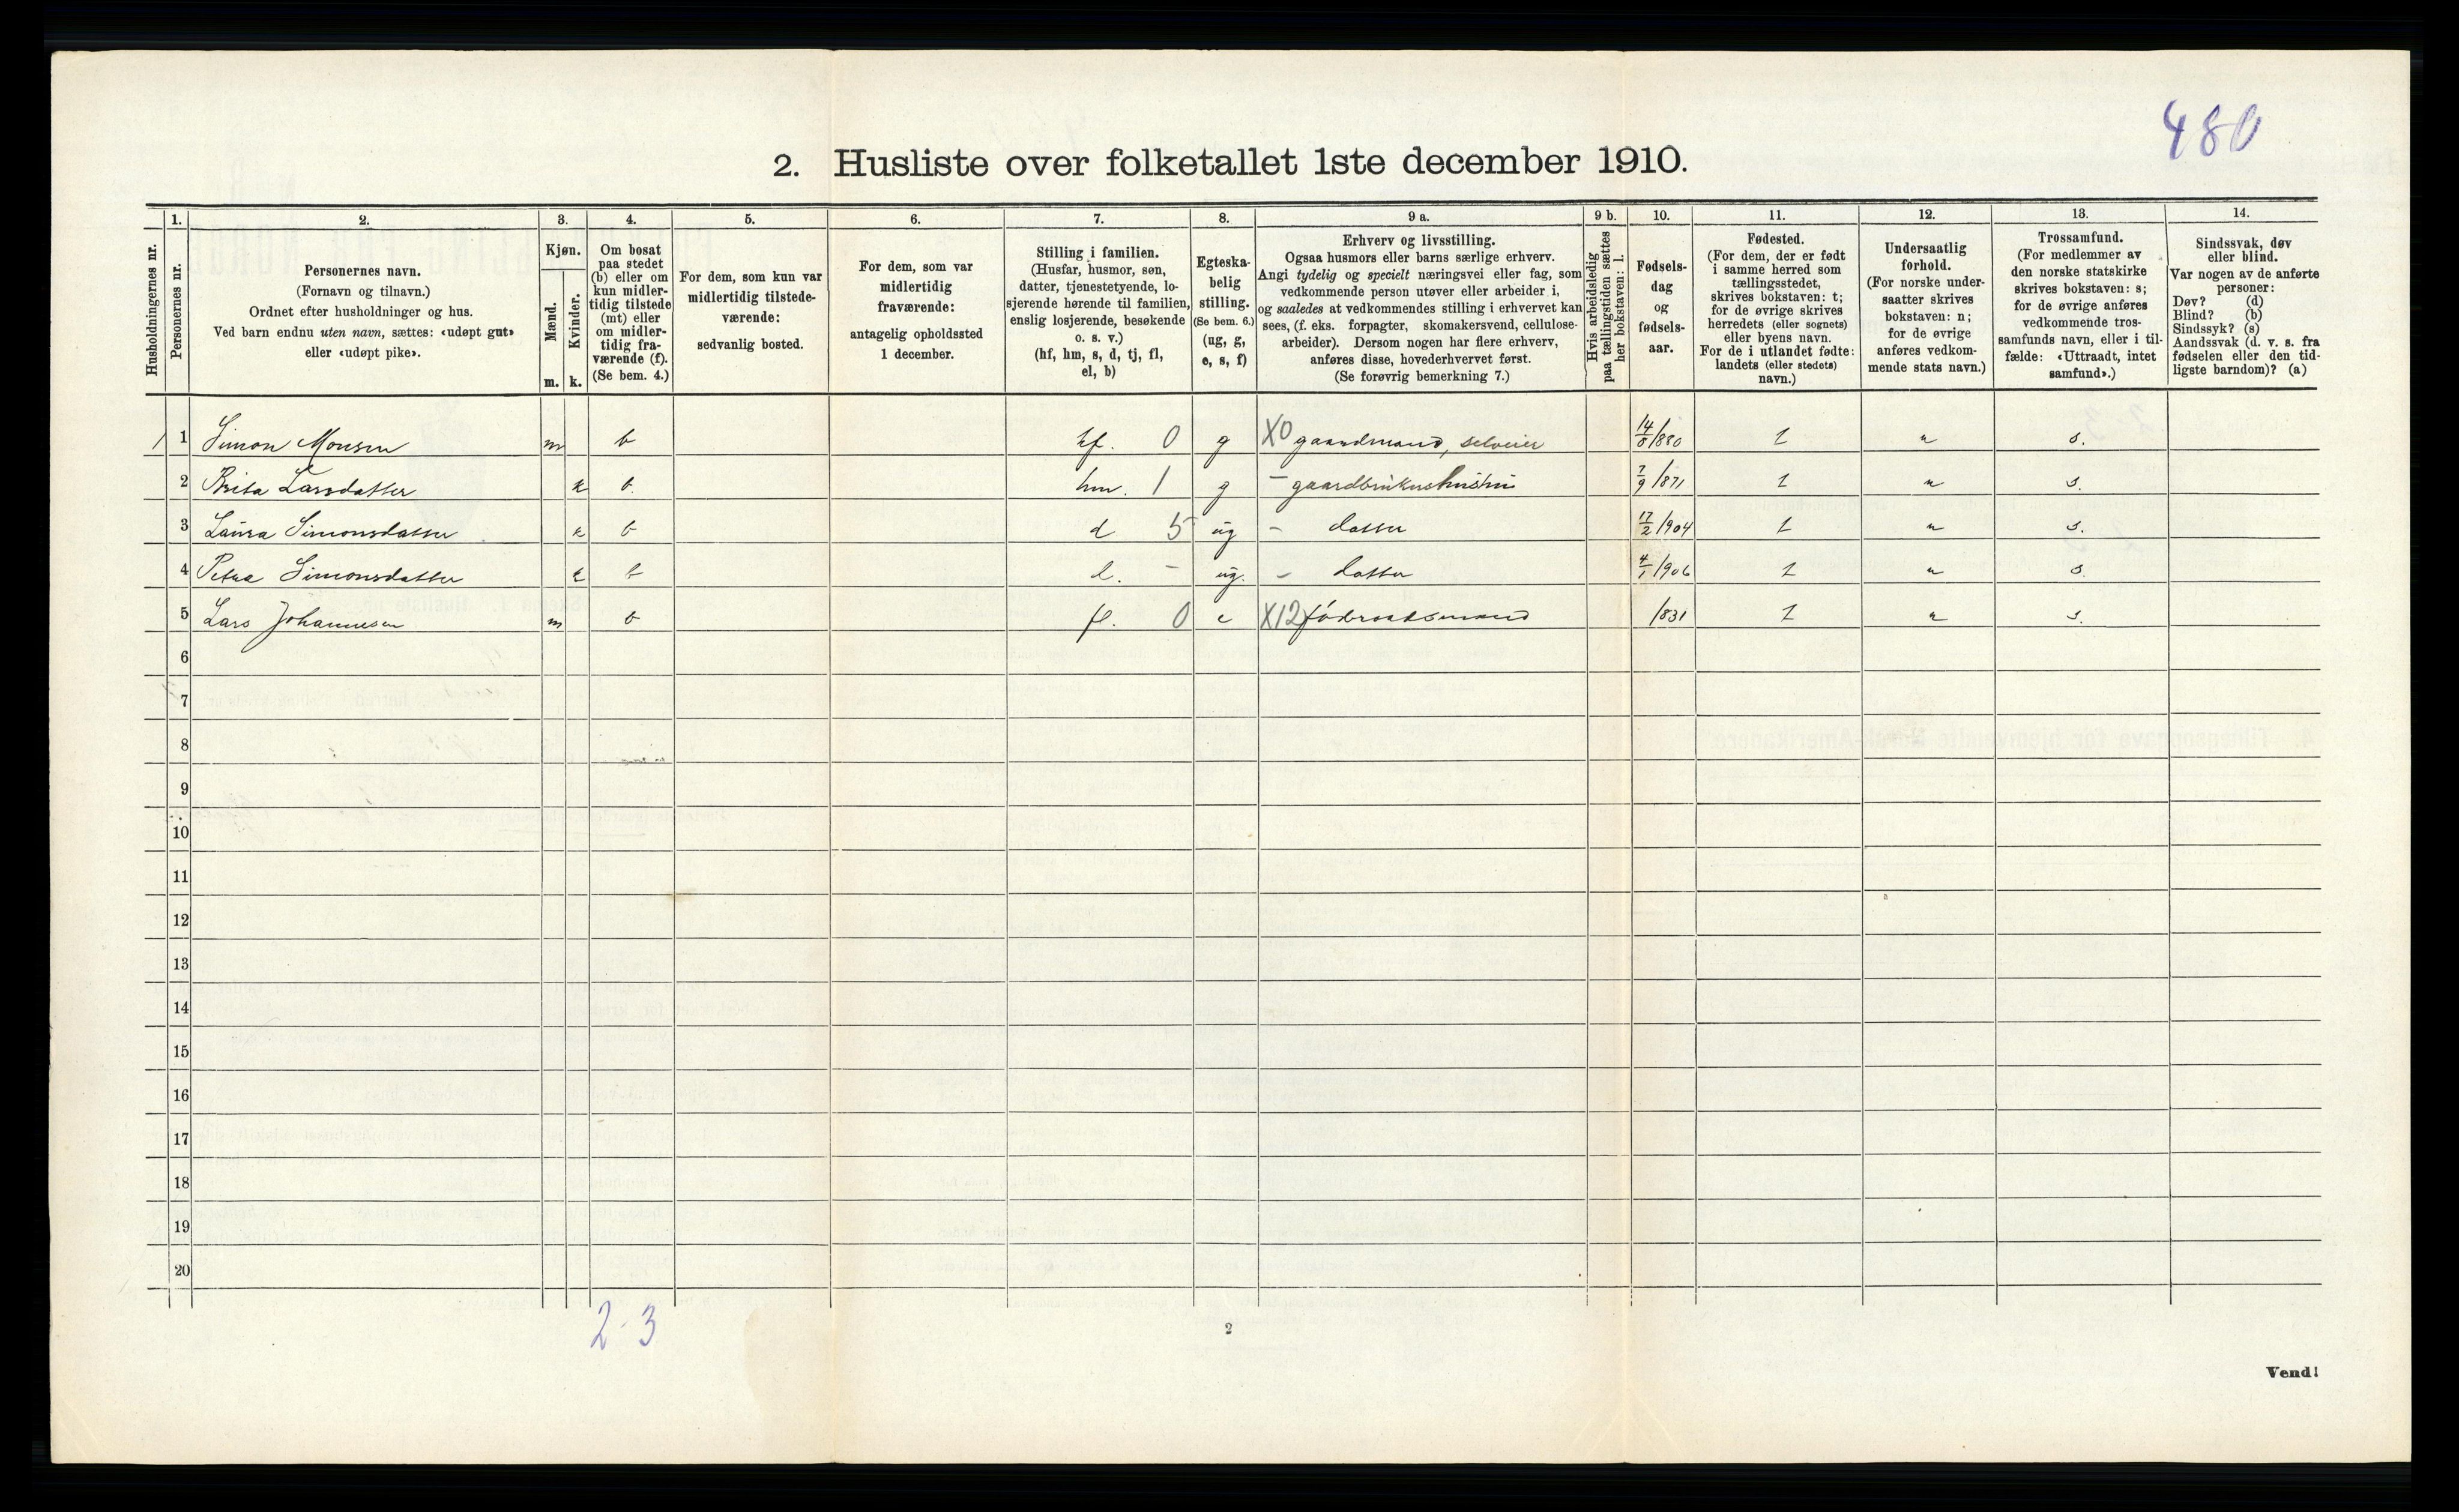 480
2. Husliste over folketallet 1ste december 1910.
Husholdningernes nr.
1.
Personernes nr.
2.
Personernes navn.
(Fornavn og tilnavn.)
Ordnet efter husholdninger og hus.
Ved barn endnu uten navn, sættes: «udøpt gut»
eller «udøpt pike».
3.
Kjøn.
Mænd.
Kvinder.
m. k.
4.
Om bosat
paa stedet
(b) eller om
kun midler-
tidig tilstede
(mt) eller
om midler-
tidig fra-
værende (f).
(Se bem. 4.)
5.
For dem, som kun var
midlertidig tilstede-
værende:
sedvanlig bosted.
6.
For dem, som var
midlertidig
fraværende:
antagelig opholdssted
1 december.
7.
Stilling i familien.
(Husfar, husmor, søn,
datter, tjenestetyende, lo-
sjerende hørende til familien,
enslig losjerende, besøkende
o. s. v.)
(hf, hm, s, d, tj, fl,
el, b)
8.
Egteska-
belig
stilling.
(Se bem. 6.)
(ug, g,
e, s, f)
9 a.
Erhverv og livsstilling.
Ogsaa husmors eller barns særlige erhverv.
Angi tydelig og specielt næringsvei eller fag, som
vedkommende person utøver eller arbeider i,
og saaledes at vedkommendes stilling i erhvervet kan
sees, (f. eks. forpagter, skomakersvend, cellulose-
arbeider). Dersom nogen har flere erhverv,
anføres disse, hovederhvervet først.
(Se forøvrig bemerkning 7.)
9 b.
Hvis arbeidsledig
paa tællingstiden sættes
her bokstaven: l.
10.
Fødsels-
dag
og
fødsels-
aar.
11.
Fødested.
(For dem, der er født
i samme herred som
tællingsstedet,
skrives bokstaven: t;
for de øvrige skrives
herredets (eller sognets)
eller byens navn.
For de i utlandet fødte:
landets (eller stedets)
navn.)
12.
Undersaatlig
forhold.
(For norske under-
saatter skrives
bokstaven: n;
for de øvrige
anføres vedkom-
mende stats navn.)
13.
Trossamfund.
(For medlemmer av
den norske statskirke
skrives bokstaven: s;
for de øvrige anføres
vedkommende tros-
samfunds navn, eller i til-
fælde: «Uttraadt, intet
samfund».)
14.
Sindssvak, døv
eller blind.
Var nogen av de anførte
personer:
Døv? (d)
Blind? (b)
Sindssyk? (s)
Aandssvak (d. v. s. fra
fødselen eller den tid-
ligste barndom)? (a)
1 1 Simon Monsen m b hf. 0 g X0 gaardmand, selveier 14/8/880 t n s.
2 Brita Larsdatter k b. hm. 1 g – gaardbrukerhustru 7/9/871 t n s.
3 Laura Simonsdatter k b d 5 ug – datter 17/2/904 t n s.
4 Petra Simonsdatter k b d. – ug. – datter 4/1/906 t n s.
5 Lars Johannesen m b fl. 0 e X12 føderaadsmand /831 t n s.
6
7
8
9
10
11
12
13
14
15
16
17
18
19
20
2-3
2
Vend!